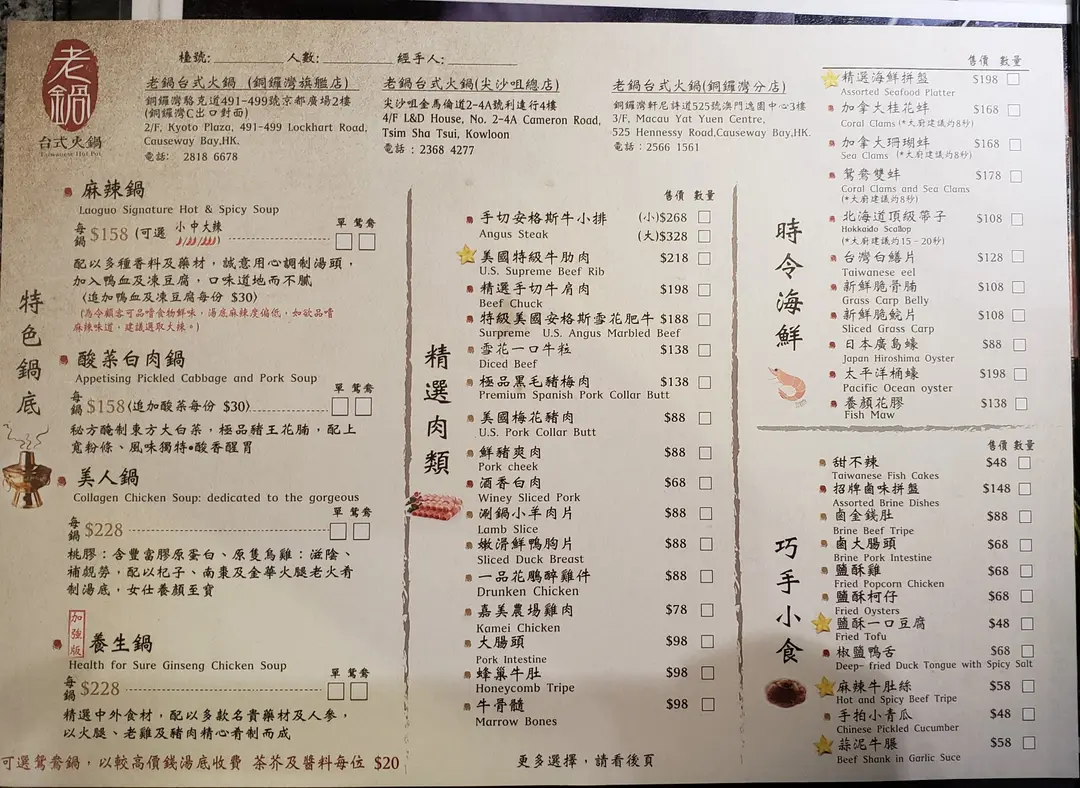 老鍋
台式火鍋
Taiwanese Hot Pot
檯號:________人數:________經手人:________
老鍋台式火鍋 (銅鑼灣旗艦店)
銅鑼灣駱克道491-499號京都廣場2樓
(銅鑼灣C出口對面)
2/F, Kyoto Plaza, 491-499 Lockhart Road,
Causeway Bay,HK.
電話: 2818 6678
老鍋台式火鍋(尖沙咀總店)
尖沙咀金馬倫道2-4A號利達行4樓
4/F L&D House, No. 2-4A Cameron Road,
Tsim Sha Tsui, Kowloon
電話：2368 4277
老鍋台式火鍋(銅鑼灣分店)
銅鑼灣軒尼詩道525號澳門逸園中心3樓
3/F, Macau Yat Yuen Centre,
525 Hennessy Road,Causeway Bay,HK.
電話：2566 1561
特色鍋底
麻辣鍋
Laoguo Signature Hot & Spicy Soup
單 鴛鴦
每鍋 $158 (可選 小中大辣
配以多種香料及藥材，誠意用心調制湯頭，
加入鴨血及凍豆腐，口味道地而不膩
(追加鴨血及凍豆腐每份 $30)
(為令顧客可品嚐食物鮮味，湯底麻辣度偏低，如欲品嚐
麻辣味道，建議選取大辣。)
酸菜白肉鍋
Appetising Pickled Cabbage and Pork Soup
單 鴛鴦
每鍋 $158(追加酸菜每份 $30)
秘方醃制東方大白菜，極品豬王花腩，配上
寬粉條、風味獨特•酸香醒胃
美人鍋
Collagen Chicken Soup: dedicated to the gorgeous
單 鴛鴦
每鍋 $228
桃膠：含豐富膠原蛋白、原隻烏雞：滋陰、
補虧勞，配以杞子、南棗及金華火腿老火肴
制湯底，女仕養顏至寶
加強版
養生鍋
Health for Sure Ginseng Chicken Soup
單 鴛鴦
每鍋 $228
精選中外食材，配以多款名貴藥材及人參，
以火腿、老雞及豬肉精心肴制而成
可選鴛鴦鍋，以較高價錢湯底收費 茶芥及醬料每位 $20
精選肉類
售價 數量
手切安格斯牛小排 (小)$268
Angus Steak (大)$328
美國特級牛肋肉 $218
U.S. Supreme Beef Rib
精選手切牛肩肉 $198
Beef Chuck
特級美國安格斯雪花肥牛 $188
Surpreme U.S. Angus Marbled Beef
雪花一口牛粒 $138
Diced Beef
極品黑毛豬梅肉 $138
Premium Spanish Pork Collar Butt
美國梅花豬肉 $88
U.S. Pork Collar Butt
鮮豬爽肉 $88
Pork cheek
酒香白肉 $68
Winey Sliced Pork
涮鍋小羊肉片 $88
Lamb Slice
嫩滑鮮鴨胸片 $88
Sliced Duck Breast
一品花鵰醉雞件 $88
Drunken Chicken
嘉美農場雞肉 $78
Kamei Chicken
大腸頭 $98
Pork Intestine
蜂巢牛肚 $98
Honeycomb Tripe
牛骨髓 $98
Marrow Bones
更多選擇，請看後頁
時令海鮮
售價 數量
精選海鮮拼盤 $198
Assorted Seafood Platter
加拿大桂花蚌 $168
Coral Clams (*大廚建議灼8秒)
加拿大珊瑚蚌 $168
Sea Clams (*大廚建議灼8秒)
鴛鴦雙蚌 $178
Coral Clams and Sea Clams
(*大廚建議灼8秒)
北海道頂級帶子 $108
Hokkaido Scallop
(*大廚建議灼15-20秒)
台灣白鱔片 $128
Taiwanese eel
新鮮脆骨腩 $108
Grass Carp Belly
新鮮脆鯇片 $108
Sliced Grass Carp
日本廣島蠔 $88
Japan Hiroshima Oyster
太平洋桶蠔 $198
Pacific Ocean oyster
養顏花膠 $138
Fish Maw
巧手小食
售價 數量
甜不辣 $48
Taiwanese Fish Cakes
招牌鹵味拼盤 $148
Assorted Brine Dishes
鹵金錢肚 $88
Brine Beef Tripe
鹵大腸頭 $68
Brine Pork Intestine
鹽酥雞 $68
Fried Popcorn Chicken
鹽酥柯仔 $68
Fried Oysters
鹽酥一口豆腐 $48
Fried Tofu
椒鹽鴨舌 $68
Deep- fried Duck Tongue with Spicy Salt
麻辣牛肚絲 $58
Hot and Spicy Beef Tripe
手拍小青瓜 $48
Chinese Pickled Cucumber
蒜泥牛𦟌 $58
Beef Shank in Garlic Suce